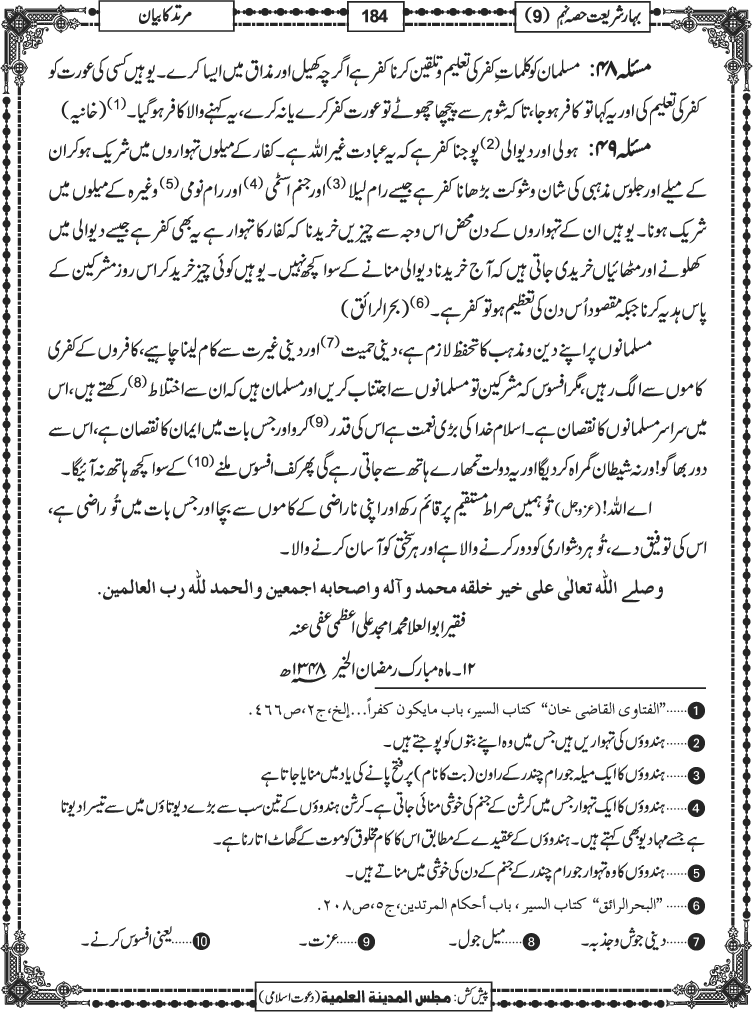 بہارِ شریعت حصہ نہم (9)
184
مرتد کا بیان
مسئلہ ۴۸: مسلمان کو کلماتِ کفر کی تعلیم و تلقین کرنا کفر ہے اگرچہ کھیل اور مذاق میں ایسا کرے۔ یوہیں کسی کی عورت کو
کفر کی تعلیم کی اور یہ کہا تو کافر ہو جا، تا کہ شوہر سے پیچھا چھوٹے تو عورت کفر کرے یا نہ کرے، یہ کہنے والا کافر ہو گیا۔(1) (خانیہ)
مسئلہ ۴۹: ہولی اور دیوالی(2) پوجنا کفر ہے کہ یہ عبادت غیر اللہ ہے۔ کفار کے میلوں تہواروں میں شریک ہو کر ان
کے میلے اور جلوس مذہبی کی شان و شوکت بڑھانا کفر ہے جیسے رام لیلا(3) اور جنم اسٹمی(4) اور رام نومی(5) وغیرہ کے میلوں میں
شریک ہونا۔ یوہیں ان کے تہواروں کے دن محض اس وجہ سے چیزیں خریدنا کہ کفار کا تہوار ہے یہ بھی کفر ہے جیسے دیوالی میں
کھلونے اور مٹھائیاں خریدی جاتی ہیں کہ آج خریدنا دیوالی منانے کے سوا کچھ نہیں۔ یوہیں کوئی چیز خرید کر اس روز مشرکین کے
پاس ہدیہ کرنا جبکہ مقصود اُس دن کی تعظیم ہو تو کفر ہے۔(6) (بحرالرائق)
مسلمانوں پر اپنے دین و مذہب کا تحفظ لازم ہے، دینی حمیت(7) اور دینی غیرت سے کام لینا چاہیے، کافروں کے کفری
کاموں سے الگ رہیں، مگر افسوس کہ مشرکین تو مسلمانوں سے اجتناب کریں اور مسلمان ہیں کہ ان سے اختلاط(8) رکھتے ہیں، اس
میں سراسر مسلمانوں کا نقصان ہے۔ اسلام خدا کی بڑی نعمت ہے اس کی قدر(9) کرو اور جس بات میں ایمان کا نقصان ہے، اس سے
دور بھاگو! ورنہ شیطان گمراہ کردیگا اور یہ دولت تمھارے ہاتھ سے جاتی رہے گی پھر کف افسوس ملنے(10) کے سوا کچھ ہاتھ نہ آئیگا۔
اے اللہ! (عزوجل) تُو ہمیں صراط مستقیم پر قائم رکھ اور اپنی ناراضی کے کاموں سے بچا اور جس بات میں تُو راضی ہے،
اس کی توفیق دے، تُو ہر دشواری کو دور کرنے والا ہے اور ہر سختی کو آسان کرنے والا۔
وصلے اللّٰه تعالیٰ علی خیر خلقه محمد و آله و اصحابه اجمعین والحمد للّٰه رب العالمین.
فقیر ابوالعلا محمد امجد علی اعظمی عفی عنہ
۱۲۔ ماہ مبارک رمضان الخیر ۱۳۴۸ھ
1 ......"الفتاوى القاضى خان" كتاب السير، باب مايكون كفراً...إلخ، ج۲، ص٤٦٦.
2 ......ہندوؤں کی تہواریں ہیں جس میں وہ اپنے بتوں کو پوجتے ہیں۔
3 ......ہندوؤں کا ایک میلہ جو رام چندر کے راون (بت کا نام) پر فتح پانے کی یاد میں منایا جاتا ہے
4 ......ہندوؤں کا ایک تہوار جس میں کرشن کے جنم کی خوشی منائی جاتی ہے۔ کرشن ہندوؤں کے تین سب سے بڑے دیوتاؤں میں سے تیسرا دیوتا
ہے جسے مہادیو بھی کہتے ہیں۔ ہندوؤں کے عقیدے کے مطابق اس کا کام مخلوق کو موت کے گھاٹ اتارنا ہے۔
5 ......ہندوؤں کا وہ تہوار جو رام چندر کے جنم کے دن کی خوشی میں مناتے ہیں۔
6 ......"البحرالرائق" كتاب السير ، باب أحكام المرتدين، ج٥، ص٢٠٨.
7 ......دینی جوش و جذبہ۔ 8 ......میل جول۔ 9 ......عزت۔ 10 ......یعنی افسوس کرنے۔
پیش کش: مجلس المدینة العلمیة (دعوت اسلامی)